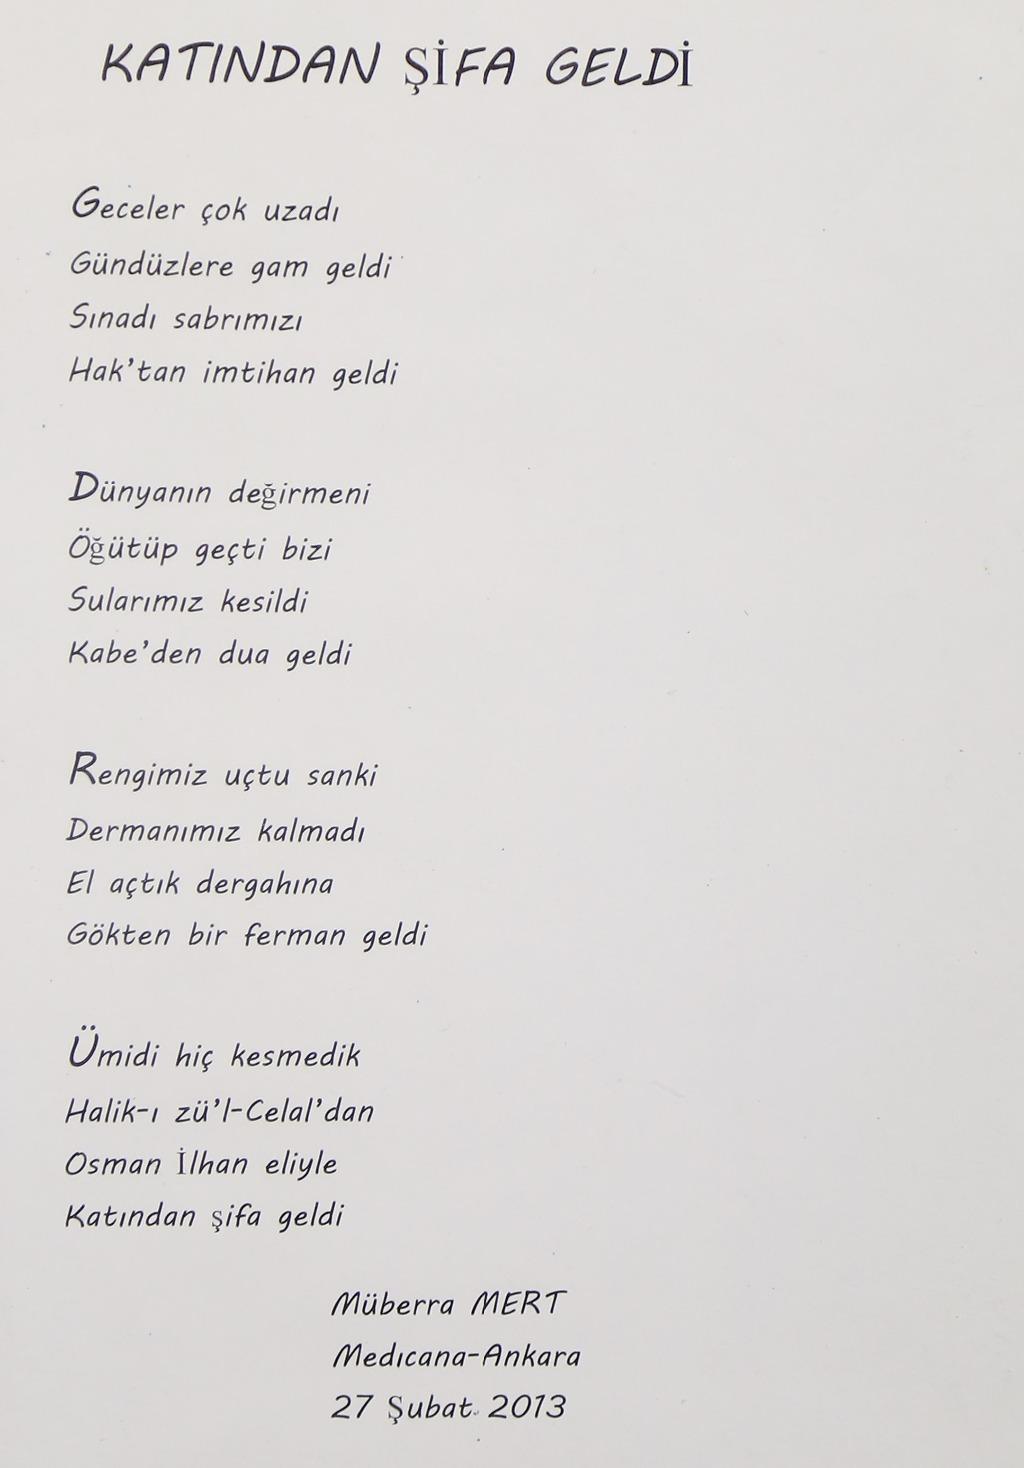 KATINDAN ŞİFA GELDİ
Geceler çok uzadı
Gündüzlere gam geldi
Sınadı sabrımızı
Hak'tan imtihan geldi
Dünyanın değirmeni
Öğütüp geçti bizi
Sularımız kesildi
Kabe'den dua geldi
Rengimiz uçtu sanki
Dermanımız kalmadı
El açtık dergahına
Gökten bir ferman geldi
Ümidi hiç kesmedik
Halik-ı zü'l-Celal'dan
Osman İlhan eliyle
Katından şifa geldi
Müberra MERT
Medıcana-Ankara
27 Şubat 2013